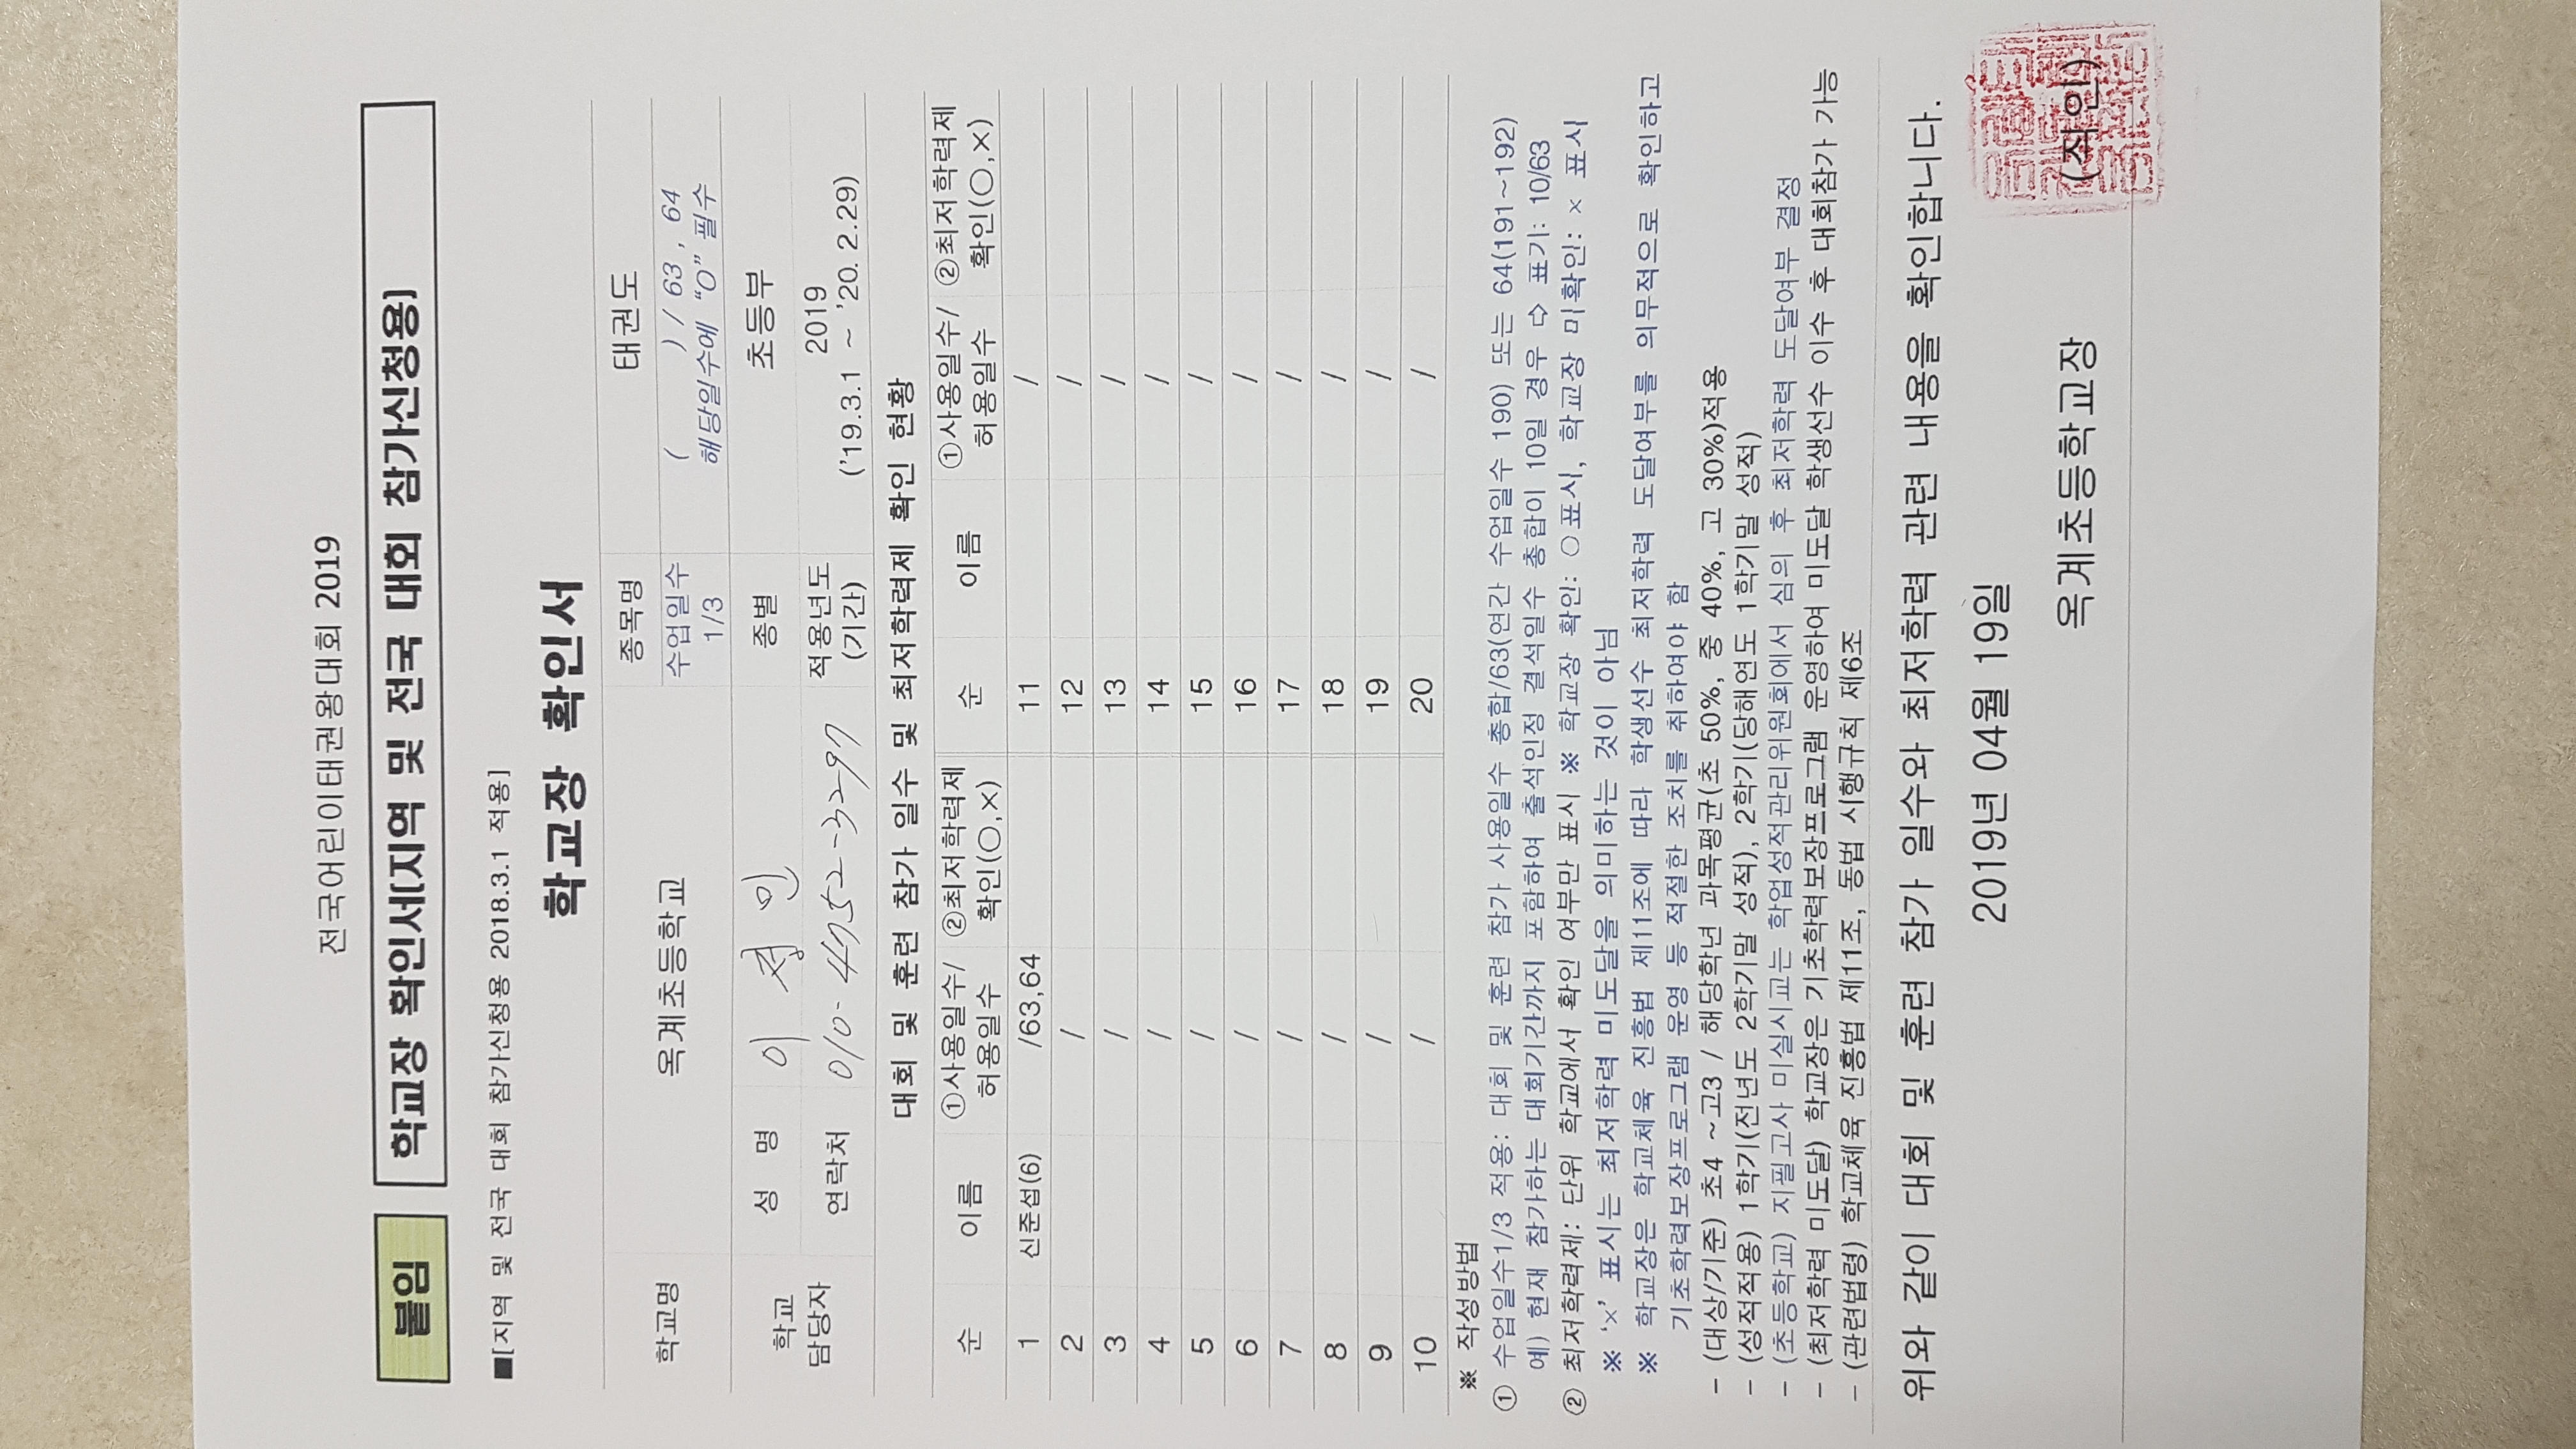 전국어린이태권왕대회 2019
붙임 학교장 확인서[지역 및 전국 대회 참가신청용]
■[지역 및 전국 대회 참가신청용 2018.3.1 적용]
학교장 확인서
학교명 옥계초등학교 종목명 태권도
수업일수 1/3 ( ) / 63 , 64
해당일수에 "O" 필수
학교 담당자 성 명 이 정 민 종별 초등부
연락처 010-4952-3297 적용년도 (기간) 2019
('19.3.1 ~ '20. 2.29)
대회 및 훈련 참가 일수 및 최저학력제 확인 현황
순 이름 ①사용일수/허용일수 ②최저학력제 확인(○,×) 순 이름 ①사용일수/허용일수 ②최저학력제 확인(○,×)
1 신준섭(6) /63,64 11 /
2 / 12 /
3 / 13 /
4 / 14 /
5 / 15 /
6 / 16 /
7 / 17 /
8 / 18 /
9 / 19 /
10 / 20 /
※ 작성방법
① 수업일수1/3 적용: 대회 및 훈련 참가 사용일수 총합/63(연간 수업일수 190) 또는 64(191~192)
예) 현재 참가하는 대회기간까지 포함하여 출석인정 결석일수 총합이 10일 경우 ⇨ 표기: 10/63
② 최저학력제: 단위 학교에서 확인 여부만 표시 ※ 학교장 확인: ○표시, 학교장 미확인: × 표시
※ '×' 표시는 최저학력 미도달을 의미하는 것이 아님
※ 학교장은 학교체육 진흥법 제11조에 따라 학생선수 최저학력 도달여부를 의무적으로 확인하고
기초학력보장프로그램 운영 등 적절한 조치를 취하여야 함
- (대상/기준) 초4 ~고3 / 해당학년 과목평균(초 50%, 중 40%, 고 30%)적용
- (성적적용) 1학기(전년도 2학기말 성적), 2학기(당해연도 1학기말 성적)
- (초등학교) 지필고사 미실시교는 학업성적관리위원회에서 심의 후 최저학력 도달여부 결정
- (최저학력 미도달) 학교장은 기초학력보장프로그램 운영하여 미도달 학생선수 이수 후 대회참가 가능
- (관련법령) 학교체육 진흥법 제11조, 동법 시행규칙 제6조
위와 같이 대회 및 훈련 참가 일수와 최저학력 관련 내용을 확인합니다.
2019년 04월 19일
옥계초등학교장 (직인)